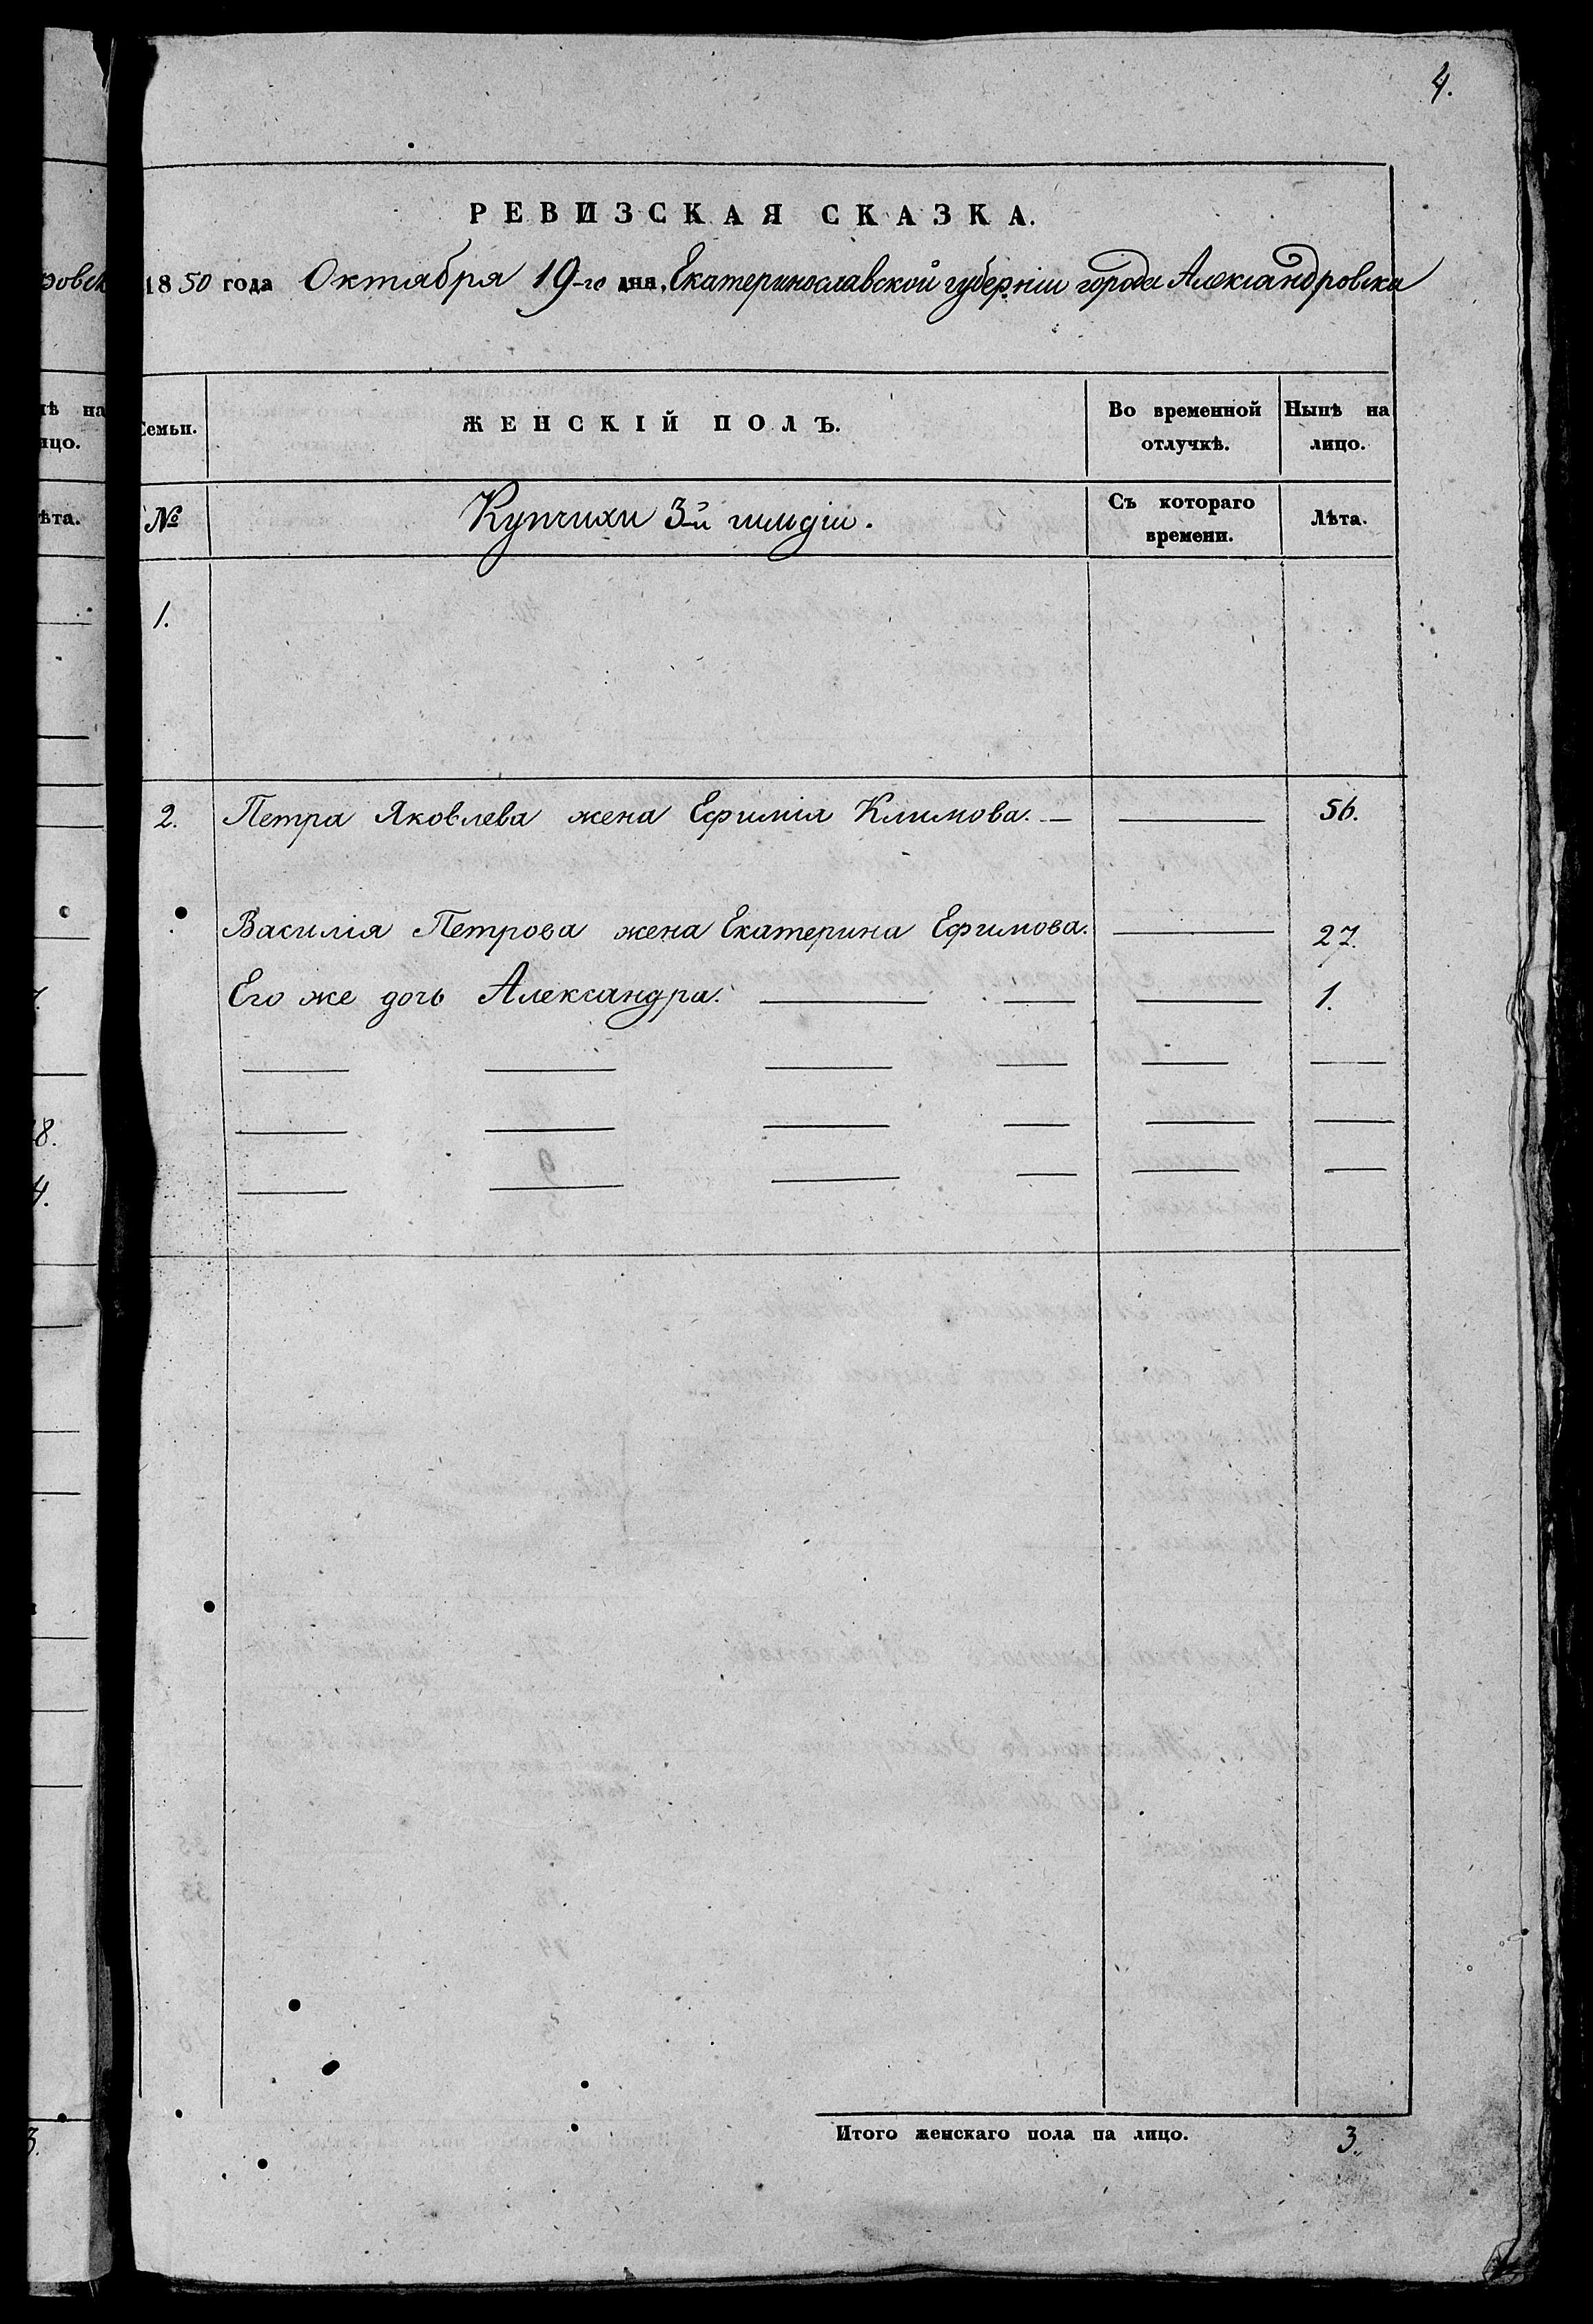 4.
РЕВИЗСКАЯ СКАЗКА.
1850 года Октября 19-го дня, Екатеринославской губерніи города Александровска
Семьи.
ЖЕНСКІЙ ПОЛЪ.
Во временной отлучкѣ.
Нынѣ на лицо.
№
Купчихи 3-й гильдіи.
Съ котораго времени.
Лѣта.
1.
2. Петра Яковлева жена Ефимія Климова. — — 56.
Василія Петрова жена Екатерина Ефимова. — 27.
Его же дочь Александра. — — — 1.
Итого женскаго пола на лицо. 3.